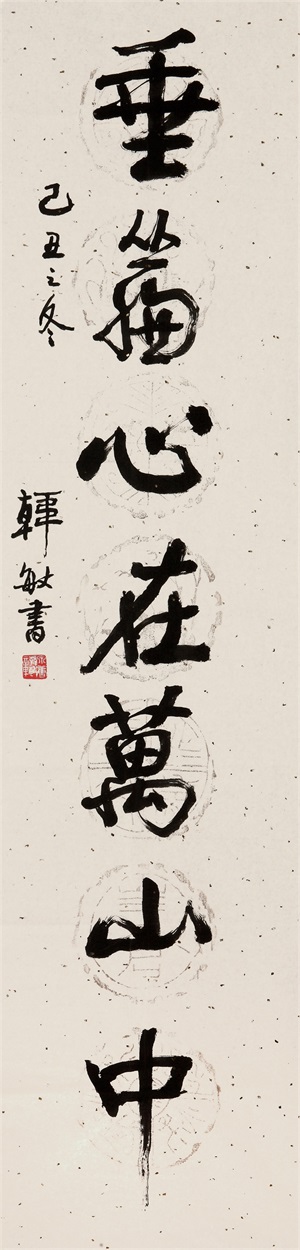 垂簾心在萬山中
己丑之冬
韓敏書